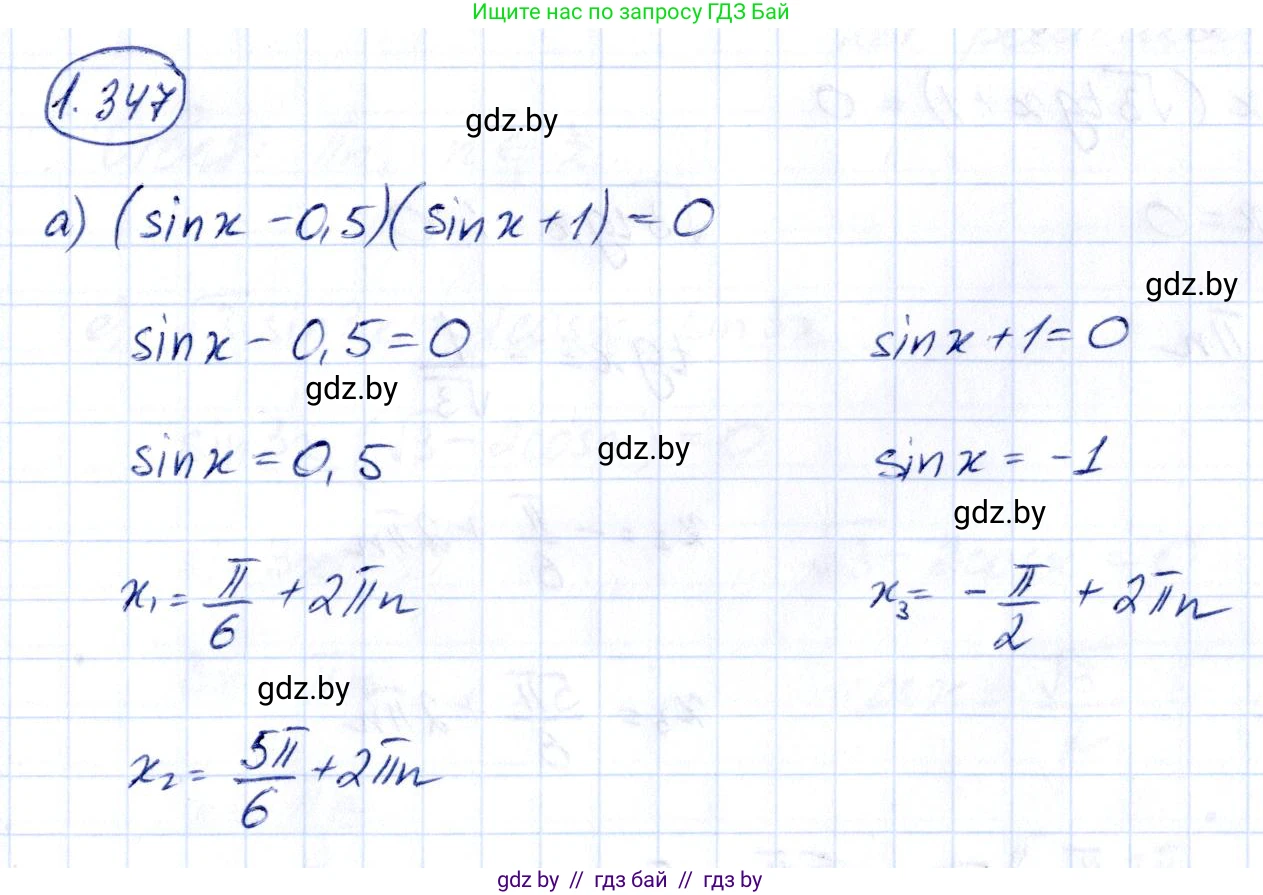 Ищите нас по запросу ГДЗ Бай
1.347
gdz.by
а) (sinx - 0,5)(sinx + 1) = 0
gdz.by
sinx - 0,5 = 0
sinx + 1 = 0
gdz.by
sinx = 0,5
gdz.by
sinx = -1
gdz.by
x₁ = π/6 + 2πn
x₃ = -π/2 + 2πn
gdz.by
x₂ = 5π/6 + 2πn
gdz.by // гдз бай // гдз by